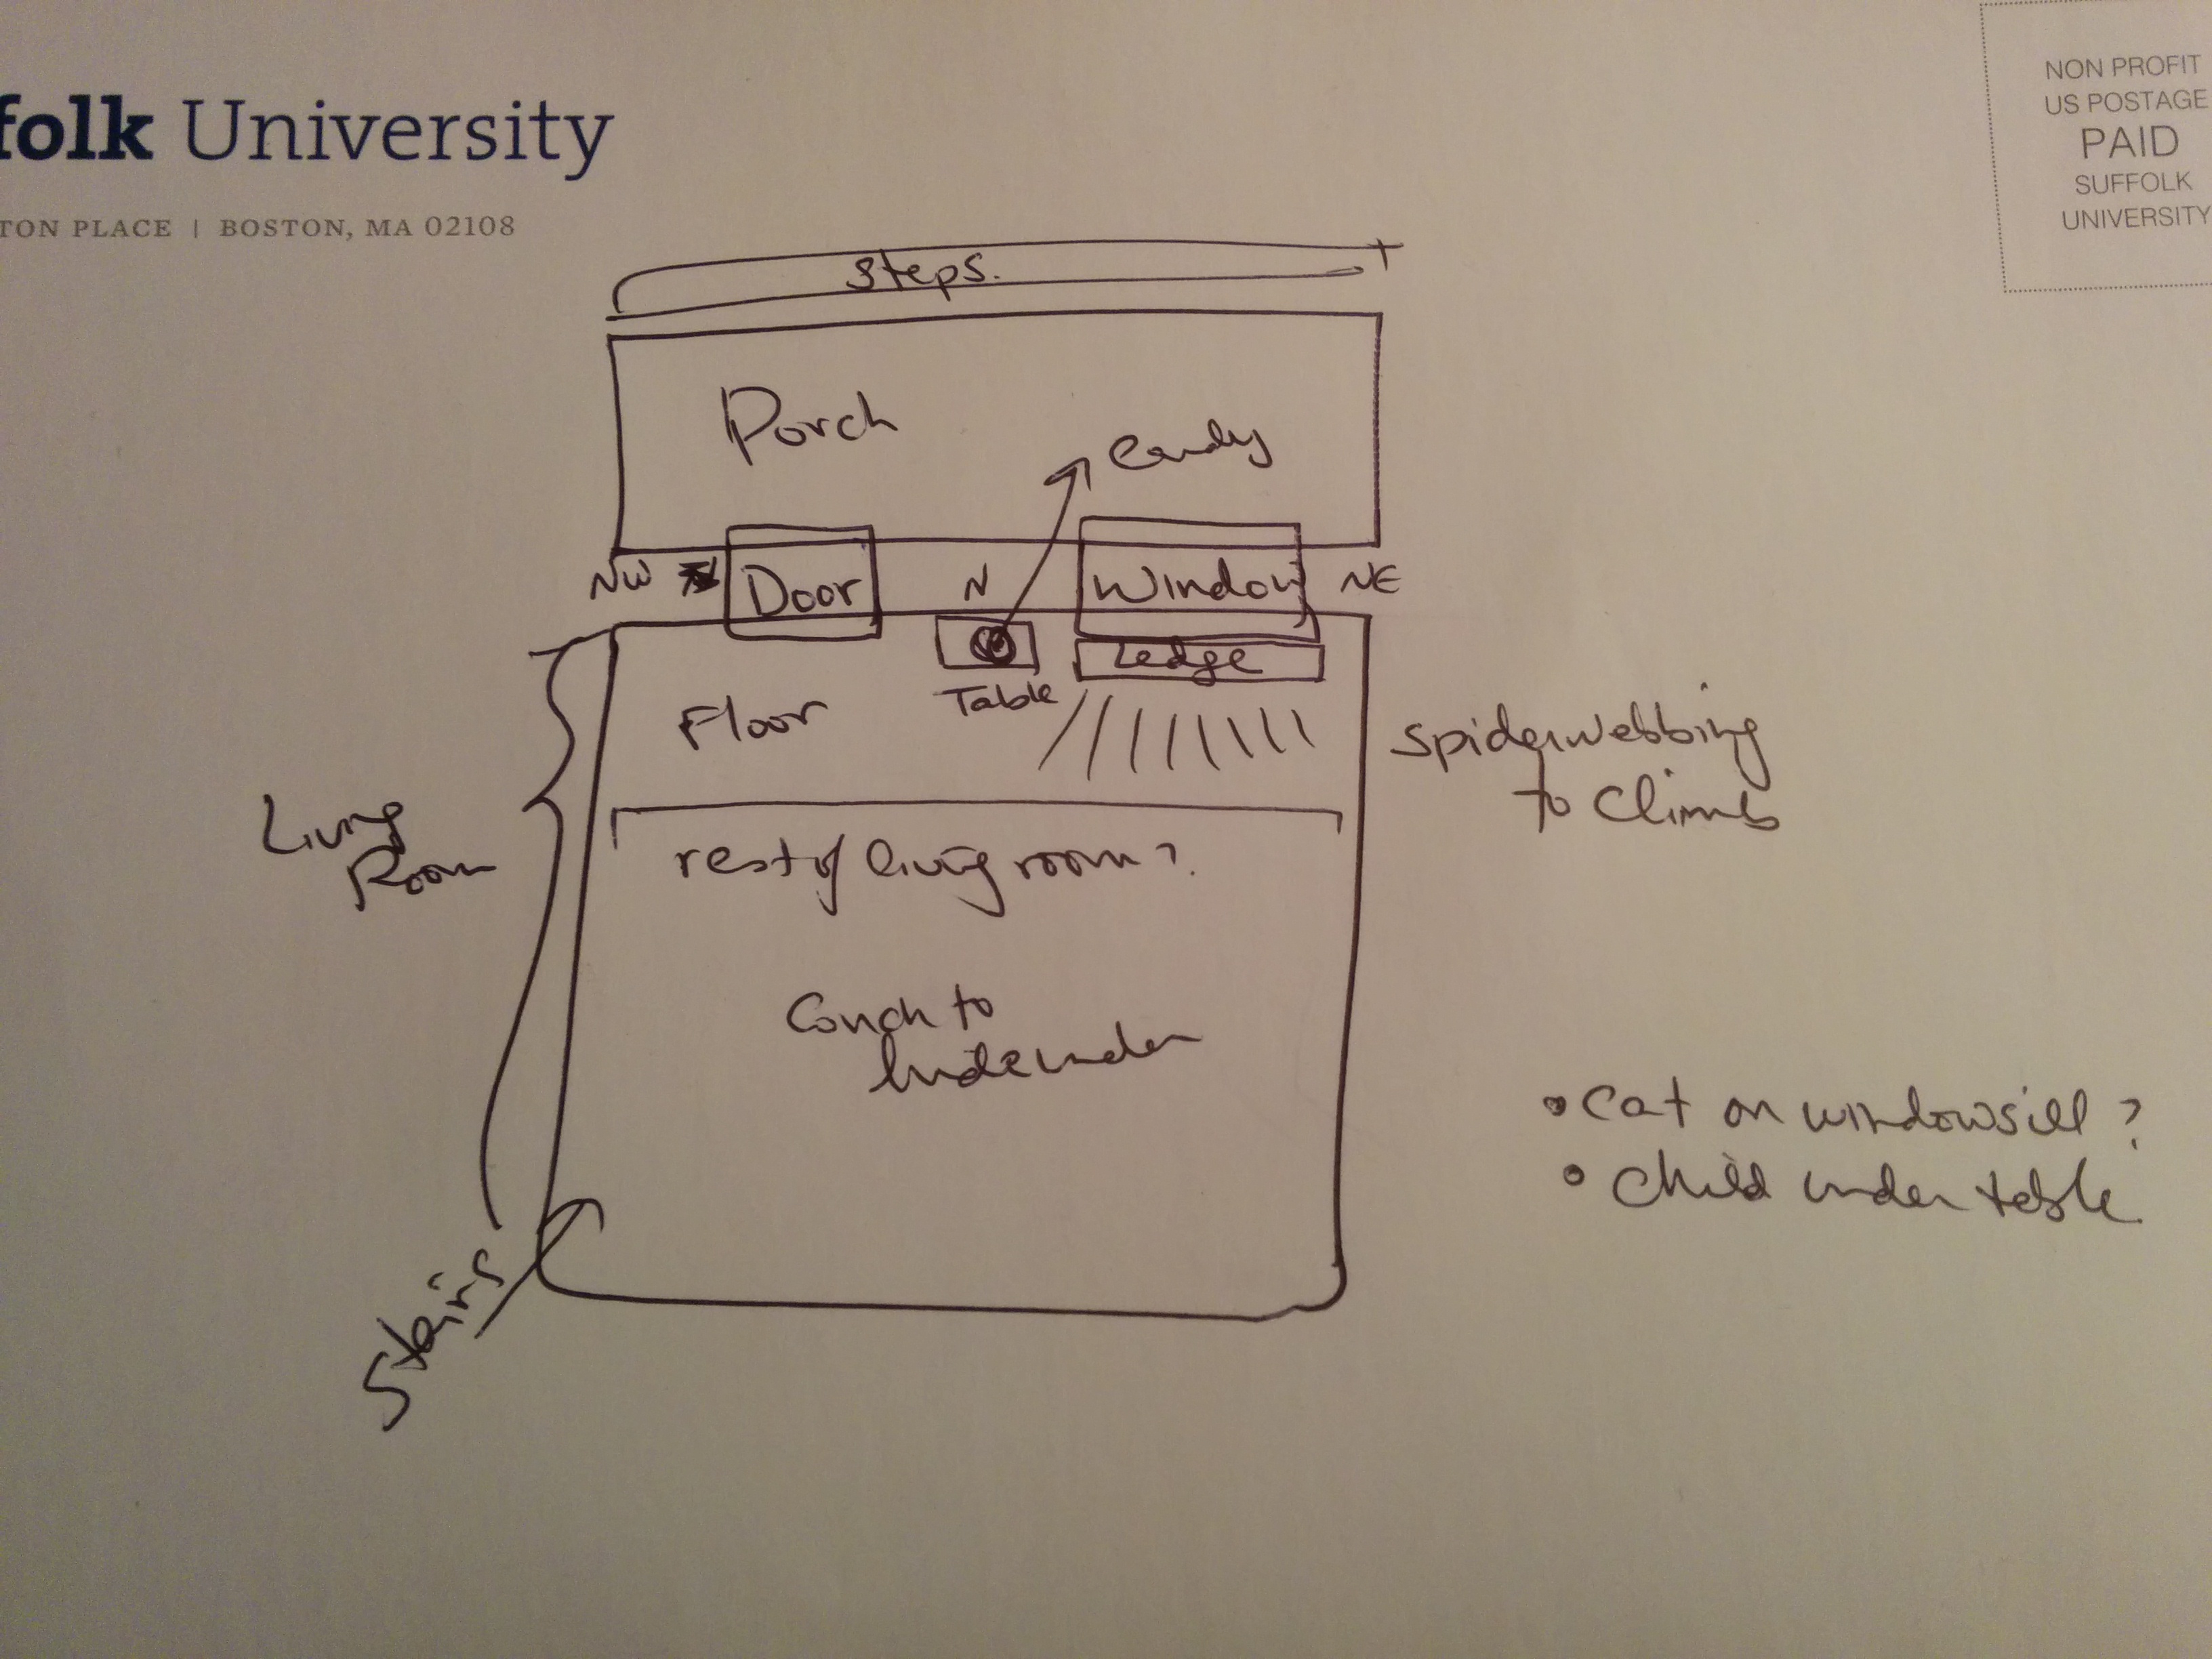 folk University
TON PLACE | BOSTON, MA 02108
NON PROFIT
US POSTAGE
PAID
SUFFOLK
UNIVERSITY
Steps.
Porch
Candy
NW
Door
N
Window
NE
Ledge
Table
Floor
Spiderwebbing
to Climb
Living
Room
rest of living room?
Couch to
hide under
• Cat on windowsill?
• Child under table
Stairs